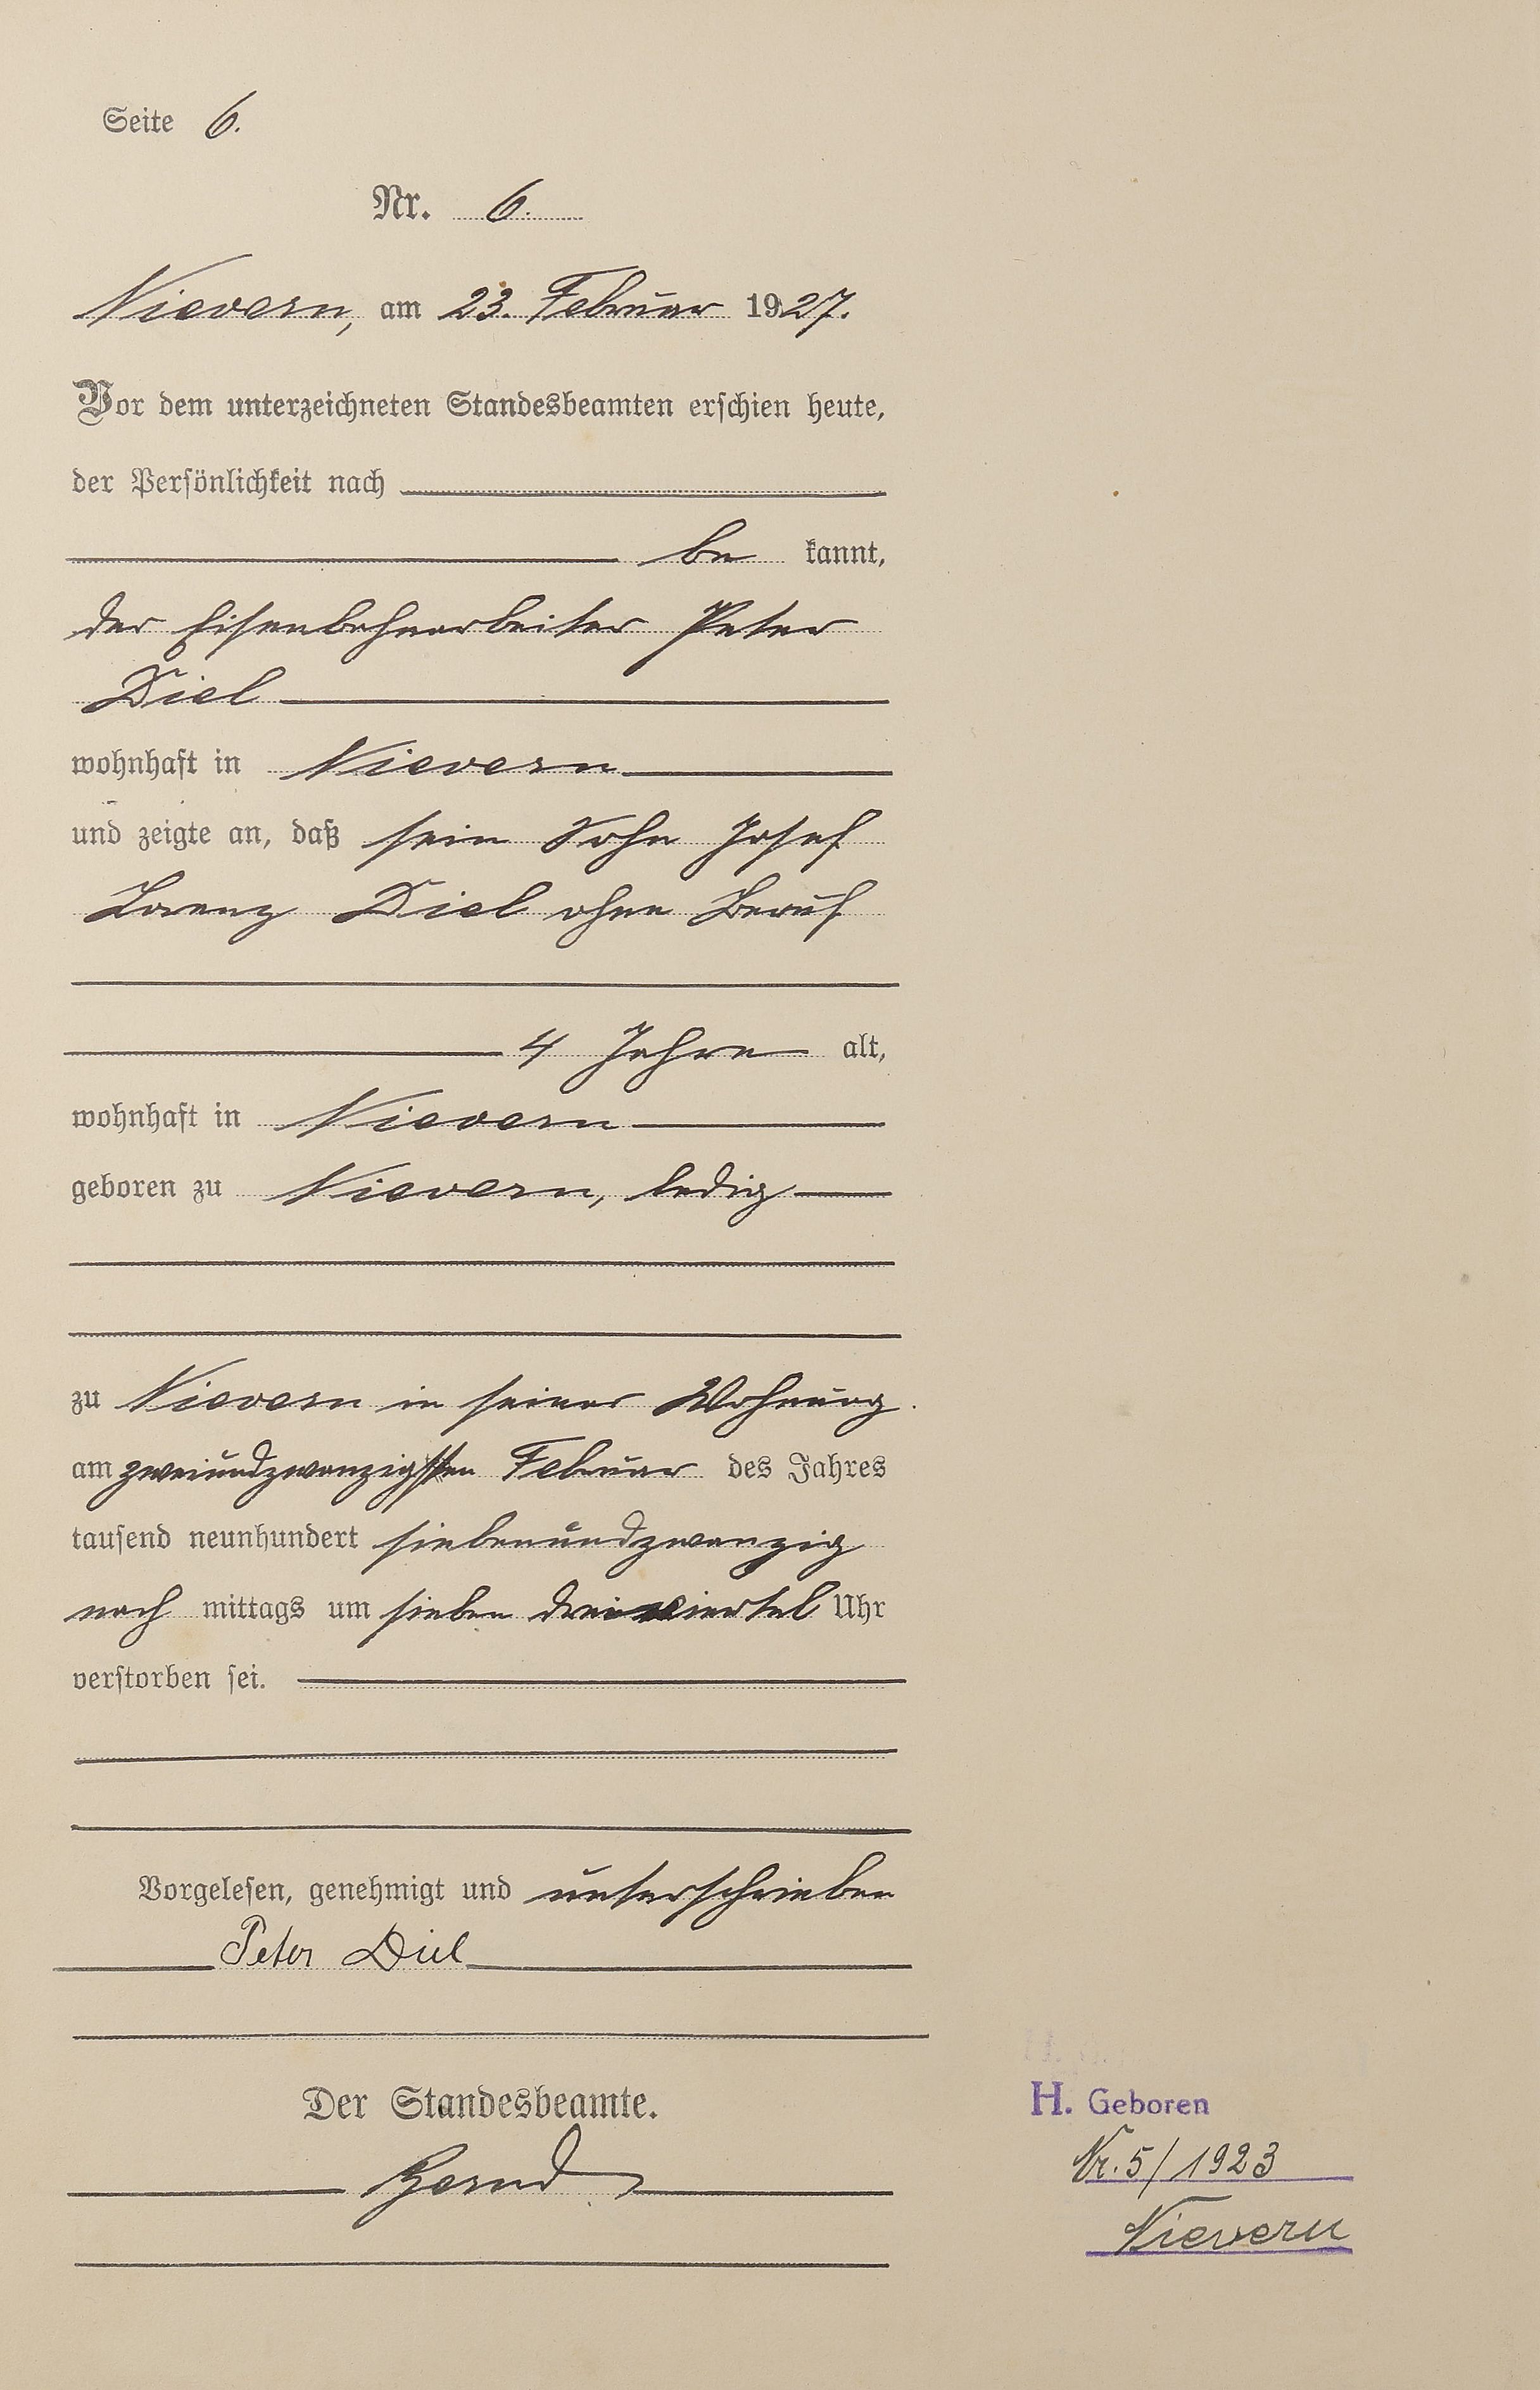 Seite 6.
Nr. 6.
Nievern, am 23. Februar 1927.
Vor dem unterzeichneten Standesbeamten erschien heute,
der Persönlichkeit nach
be kannt,
der Eisenbahnarbeiter Peter
Diel
wohnhaft in Nievern
und zeigte an, daß sein Sohn Josef
Lorenz Diel ohne Beruf
4 Jahre alt,
wohnhaft in Nievern
geboren zu Nievern, ledig
zu Nievern in seiner Wohnung.
am zweiundzwanzigsten Februar des Jahres
tausend neunhundert siebenundzwanzig
nach mittags um sieben dreiviertel Uhr
verstorben sei.
Vorgelesen, genehmigt und unterschrieben
Peter Diel
Der Standesbeamte.
H. Geboren
Nr. 5/1923
Nievern